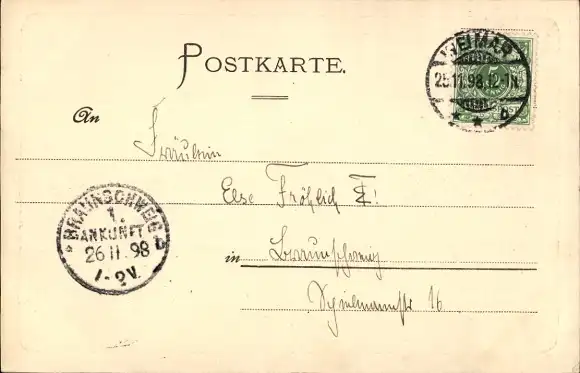 POSTKARTE.
WEIMAR
25.11.98.12-1N.
5
An
Fräulein
Else Fröhlich
in Braunschweig
16
BRAUNSCHWEIG
1.
ANKUNFT
26 11. 98
1-2V.